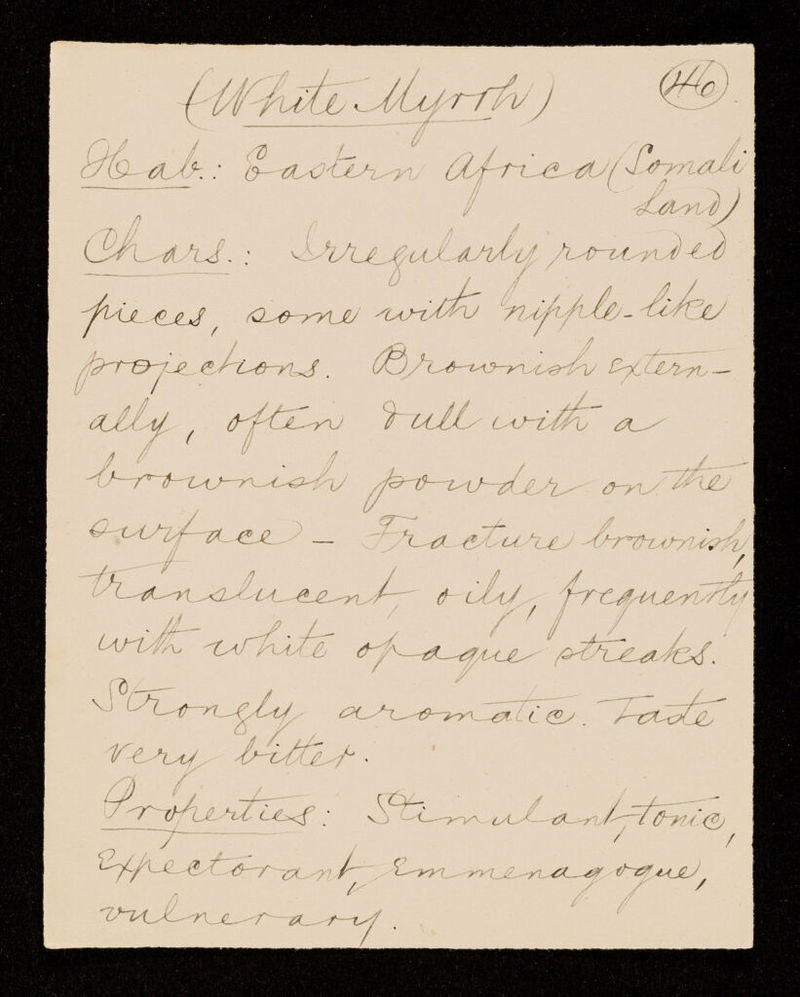 (White Myrrh) 46
Hab.: Eastern Africa (Somali
Land)
Chars.: Irregularly rounded
pieces, some with nipple-like
projections. Brownish extern-
ally, often dull with a
brownish powder on the
surface – Fracture brownish,
translucent, oily, frequently
with white opaque streaks.
Strongly aromatic. Taste
very bitter.
Properties: Stimulant, tonic,
Expectorant, Emmenagogue,
vulnerary.